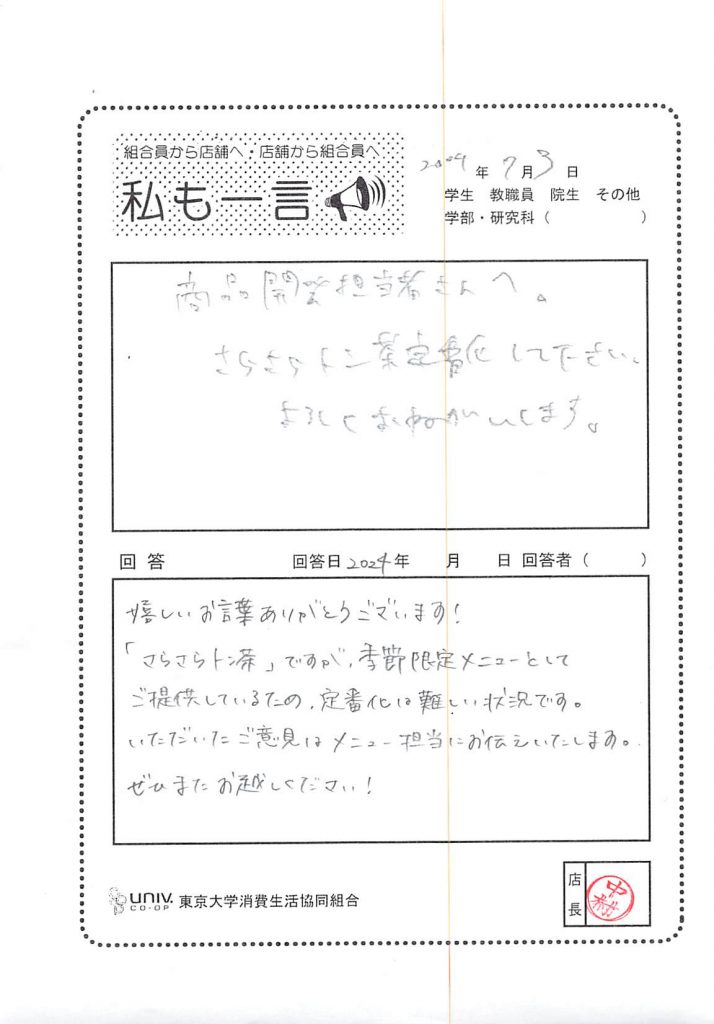 組合員から店舗へ・店舗から組合員へ
私も一言
2024年 7月3日
学生 教職員 院生 その他
学部・研究科( )
商品開発担当者さんへ。
さらさらトン茶定番化して下さい。
よろしくおねがいします。
回答 回答日2024年 月 日 回答者( )
嬉しいお言葉ありがとうございます!
「さらさらトン茶」ですが、季節限定メニューとして
ご提供しているため、定番化は難しい状況です。
いただいたご意見はメニュー担当にお伝えいたします。
ぜひまたお越しください!
UNIV. CO-OP 東京大学消費生活協同組合
店長
中